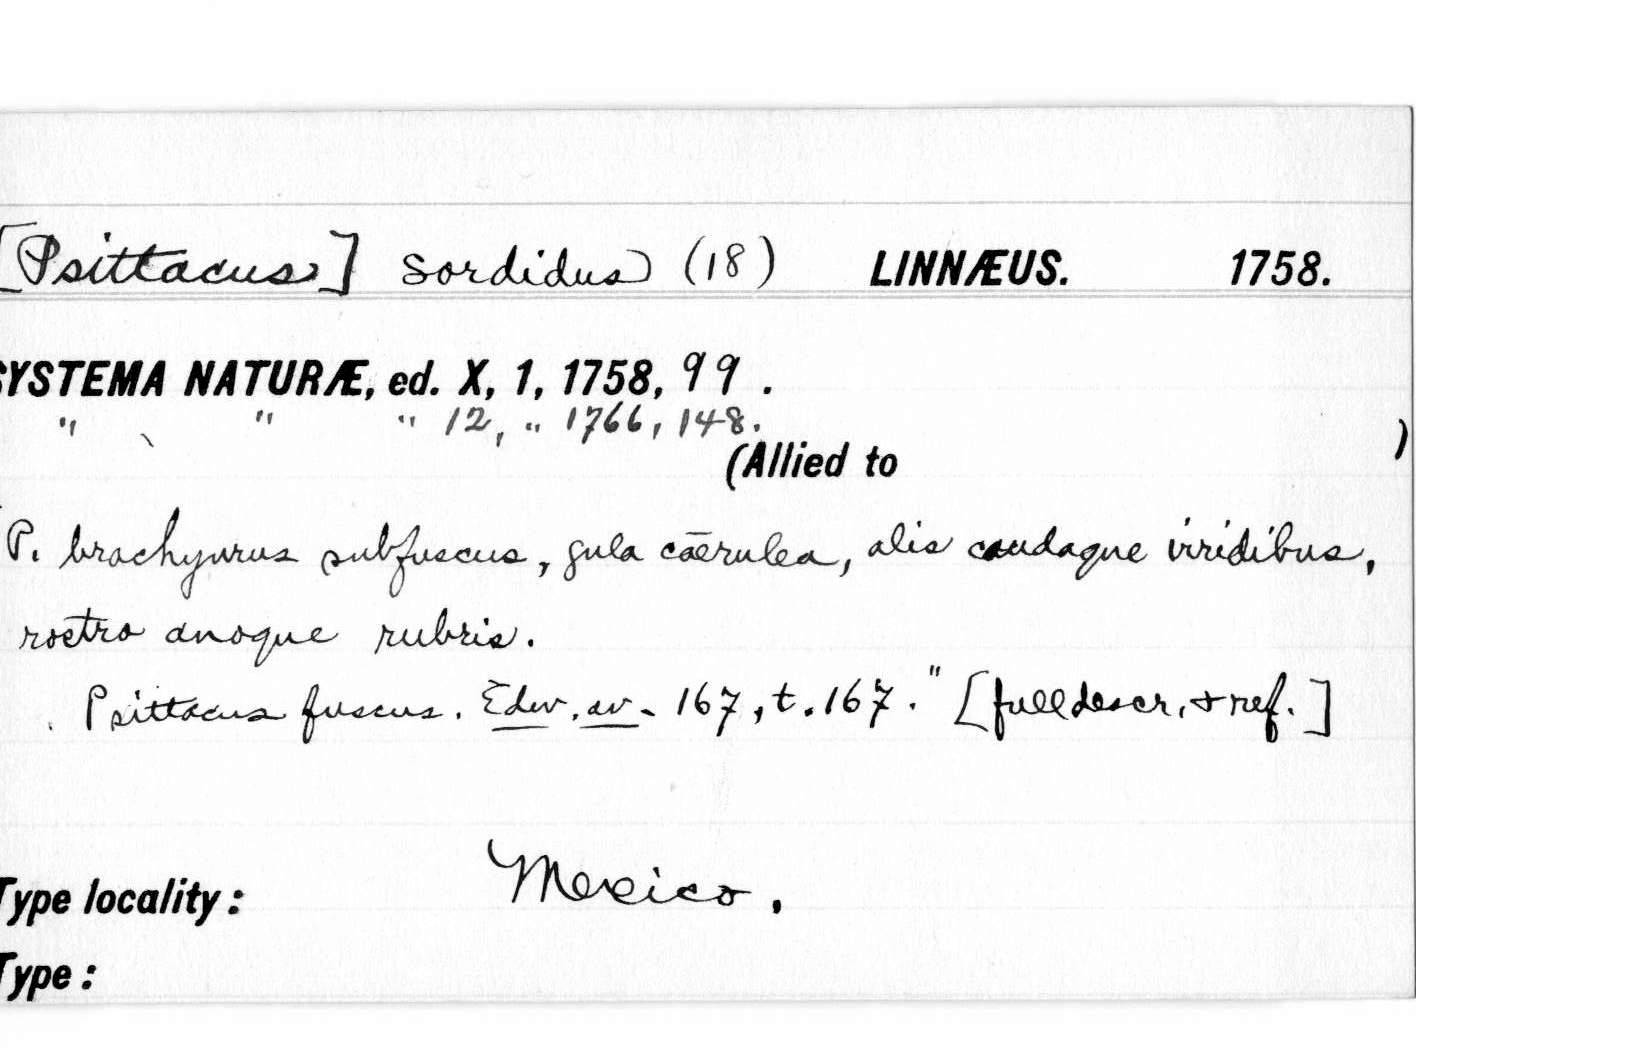 [Psittacus] sordidus (18) LINNÆUS. 1758.
SYSTEMA NATURÆ, ed. X, 1, 1758, 99.
" " " 12, " 1766, 148.
(Allied to )
P. brachyurus subfuscus, gula cœrulea, alis caudaque viridibus,
rostro anoque rubris.
Psittacus fuscus. Edw. av. 167, t. 167." [full descr. & ref.]
Type locality: Mexico.
Type: